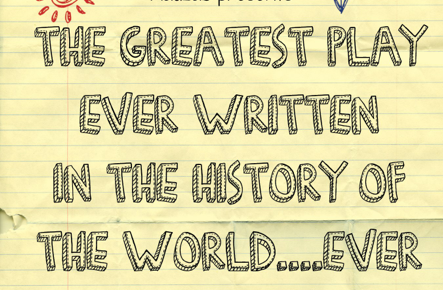 presents
THE GREATEST PLAY
EVER WRITTEN
IN THE HISTORY OF
THE WORLD....EVER